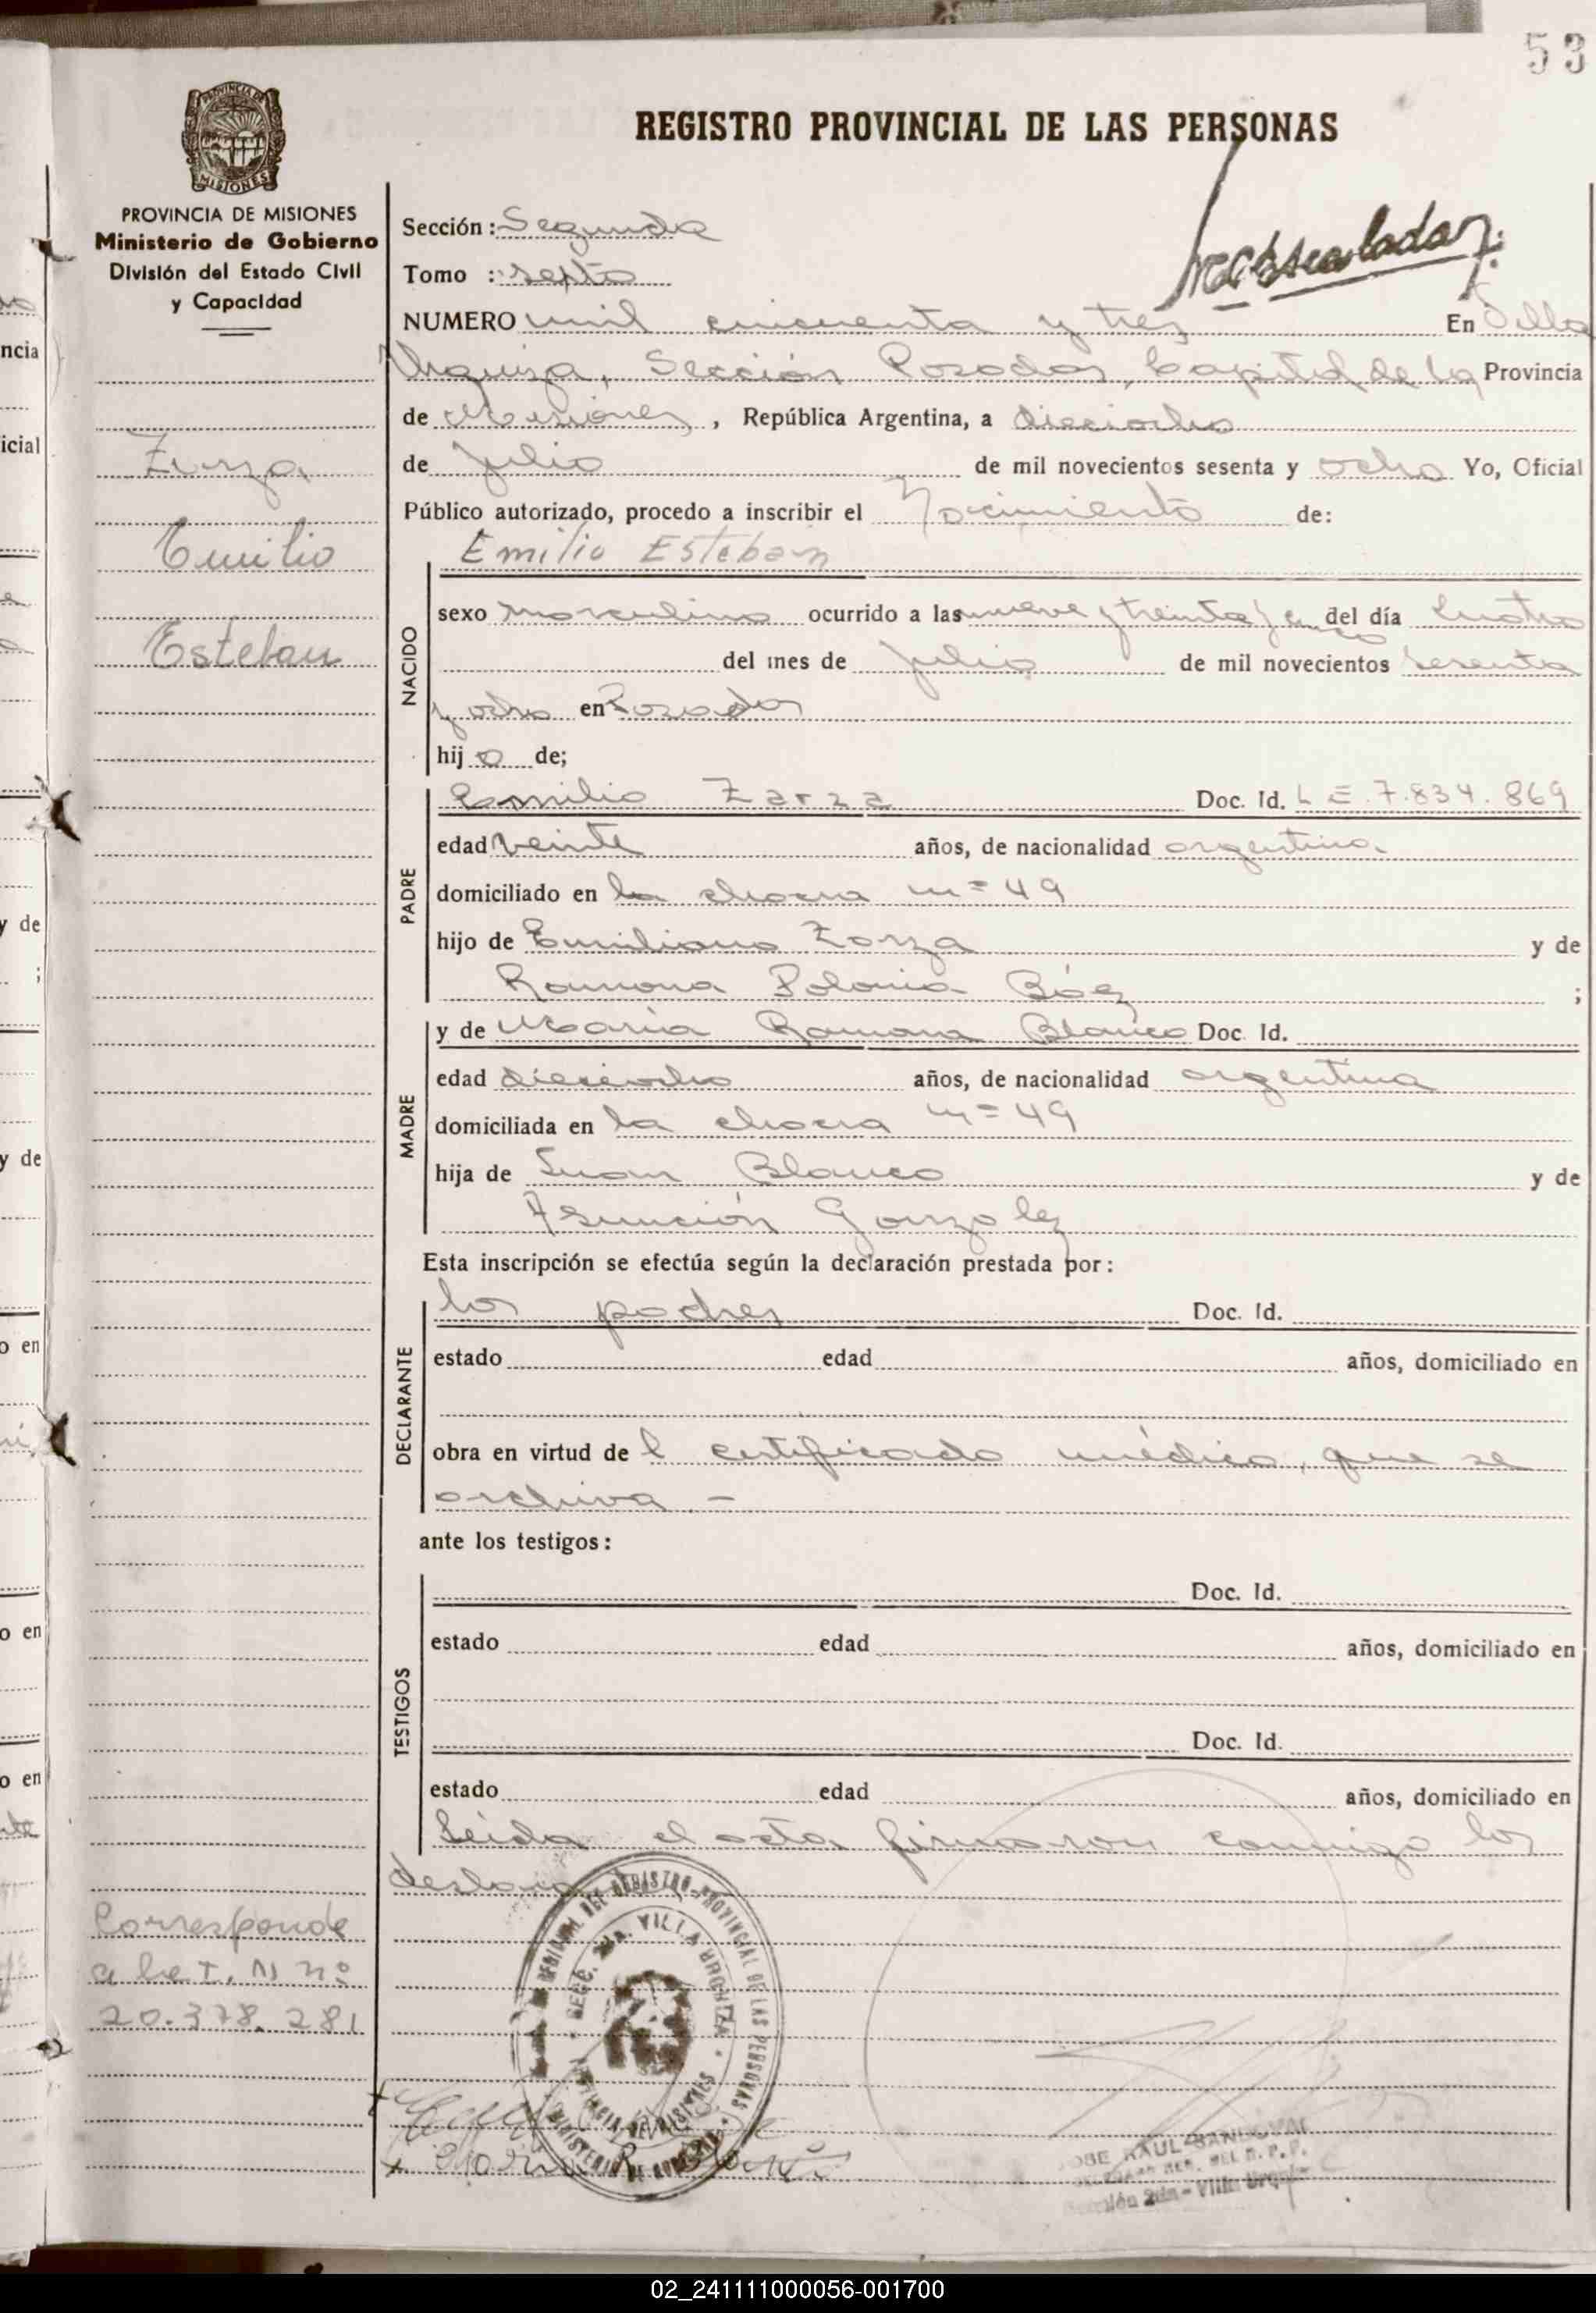 53
REGISTRO PROVINCIAL DE LAS PERSONAS
PROVINCIA DE MISIONES
Ministerio de Gobierno
División del Estado Civil
y Capacidad
Zarza
Emilio
Esteban
Sección: Segunda
Tomo : sexto
NUMERO mil cincuenta y tres En Villa
Urquiza, Sección Posadas, Capital de la Provincia
de Misiones, República Argentina, a dieciocho
de Julio de mil novecientos sesenta y ocho Yo, Oficial
Público autorizado, procedo a inscribir el Nacimiento de:
NACIDO
Emilio Esteban
sexo masculino ocurrido a las nueve y treinta y cinco del día cuatro
del mes de Julio de mil novecientos sesenta
y ocho en Posadas
hijo de;
PADRE
Emilio Zarza Doc. Id. L E. 7.834.869
edad veinte años, de nacionalidad argentina
domiciliado en la chacra nº 49
hijo de Emiliano Zarza y de
Ramona Polonia Báez ;
MADRE
y de María Ramona Blanco Doc. Id.
edad dieciocho años, de nacionalidad argentina
domiciliada en la chacra nº 49
hija de Juan Blanco y de
Asunción Gonzalez
Esta inscripción se efectúa según la declaración prestada por:
DECLARANTE
los padres Doc. Id.
estado edad años, domiciliado en
obra en virtud de l certificado médico, que se
archiva -
ante los testigos:
TESTIGOS
Doc. Id.
estado edad años, domiciliado en
Doc. Id.
estado edad años, domiciliado en
Leída el acta, firmaron conmigo los
Corresponde
a la T. N nº
20.378.281
REGISTRO PROVINCIAL DE LAS PERSONAS
SECC. 2da. VILLA URQUIZA
PROVINCIA DE MISIONES
MINISTERIO DE GOBIERNO
María R. Blanco
JOSE RAUL SANDOVAL
Sección 2da - Villa Urquiza
02_241111000056-001700